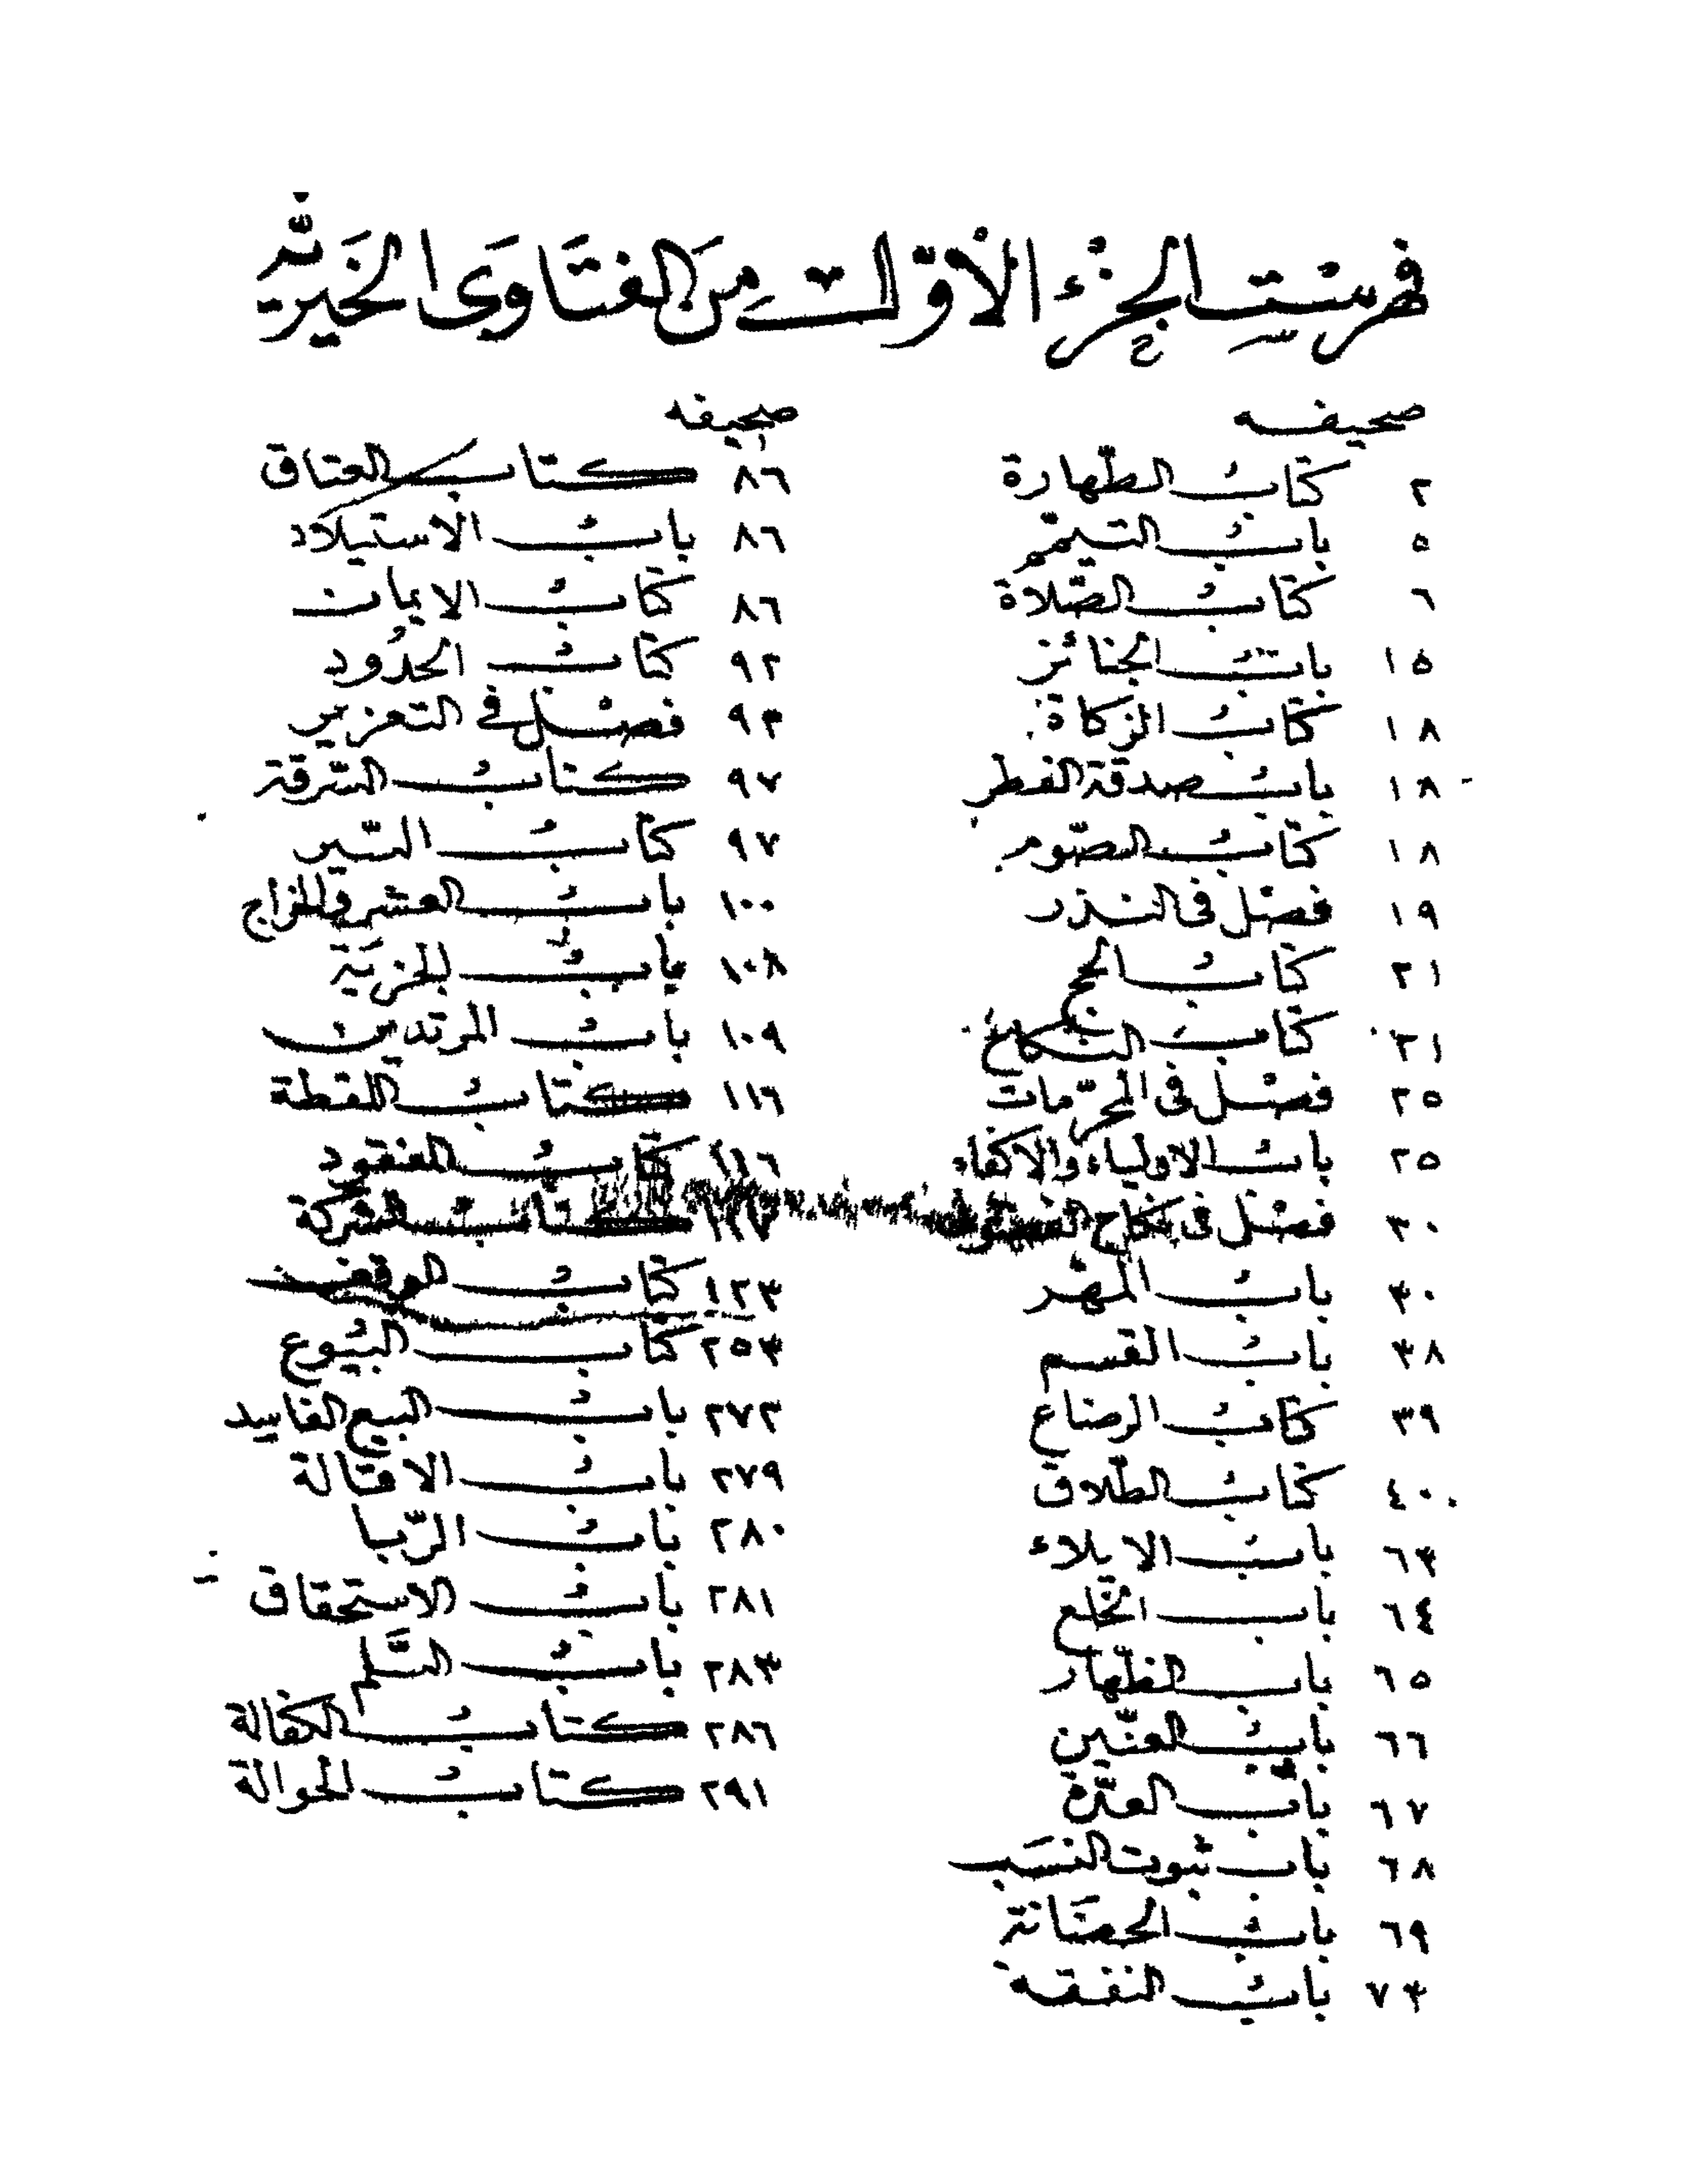 فهرست الجزء الأوّل من الفتاوى الخيريّة
صحيفه
٢ كتاب الطّهارة
٥ باب التيمّم
٦ كتاب الصّلاة
١٥ باب الجنائز
١٨ كتاب الزكاة
١٨ باب صدقة الفطر
١٨ كتاب الصّوم
١٩ فصل فى النذر
٢١ كتاب الحج
٢١ كتاب النكاح
٢٥ فصل فى المحرّمات
٢٥ باب الاولياء والاكفاء
٣٠ فصل فى نكاح
٣٠ باب المهر
٣٨ باب القسم
٣٩ كتاب الرضاع
٤٠ كتاب الطّلاق
٦٣ باب الايلاء
٦٤ باب الخلع
٦٥ باب الظهار
٦٦ باب العنّين
٦٧ باب العدّة
٦٨ باب ثبوت النسَب
٦٩ باب الحضَانة
٧٣ باب النفقة
صحيفه
٨٦ كتاب العتاق
٨٦ باب الاستيلاد
٨٦ كتاب الايمان
٩٢ كتاب الحدُود
٩٣ فصل في التعزير
٩٧ كتاب السّرقة
٩٧ كتاب السّير
١٠٠ باب العشر والخراج
١٠٨ باب الجزيَة
١٠٩ باب المرتدين
١١٦ كتاب اللقطة
١١٦ كتاب المفقود
١١٧ كتاب الشركة
١٢٣ كتاب الوقف
٢٥٣ كتاب البيُوع
٢٧٢ باب البيع الفاسِد
٢٧٩ باب الاقالة
٢٨٠ باب الرّبا
٢٨١ باب الاستحقاق
٢٨٣ باب السَّلم
٢٨٦ كتاب الكفالة
٢٩١ كتاب الحوالة